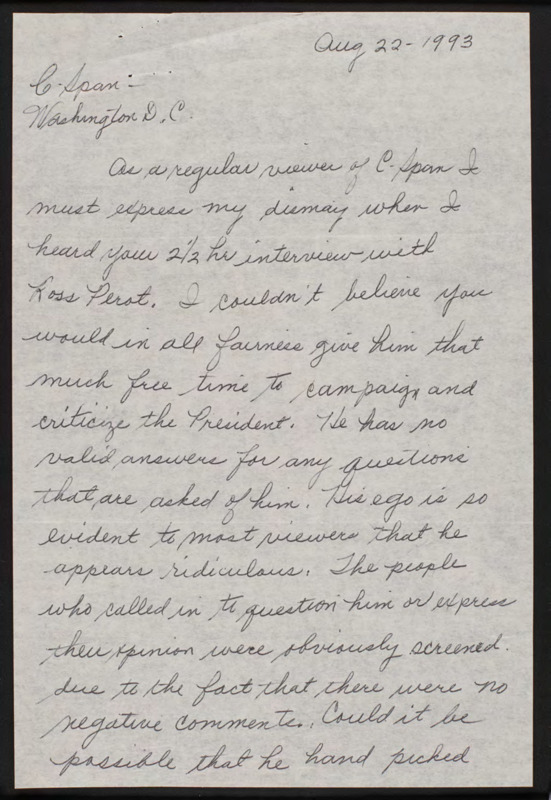 Aug 22-1993
C-Span-
Washington D.C.
As a regular viewer of C-Span I
must express my dismay when I
heard your 2 1/2 hr interview with
Ross Perot. I couldn't believe you
would in all fairness give him that
much free time to campaign and
criticize the President. He has no
valid answers for any questions
that are asked of him. His ego is so
evident to most viewers that he
appears ridiculous. The people
who called in to question him or express
their opinion were obviously screened.
due to the fact that there were no
negative comments. Could it be
possible that he hand picked